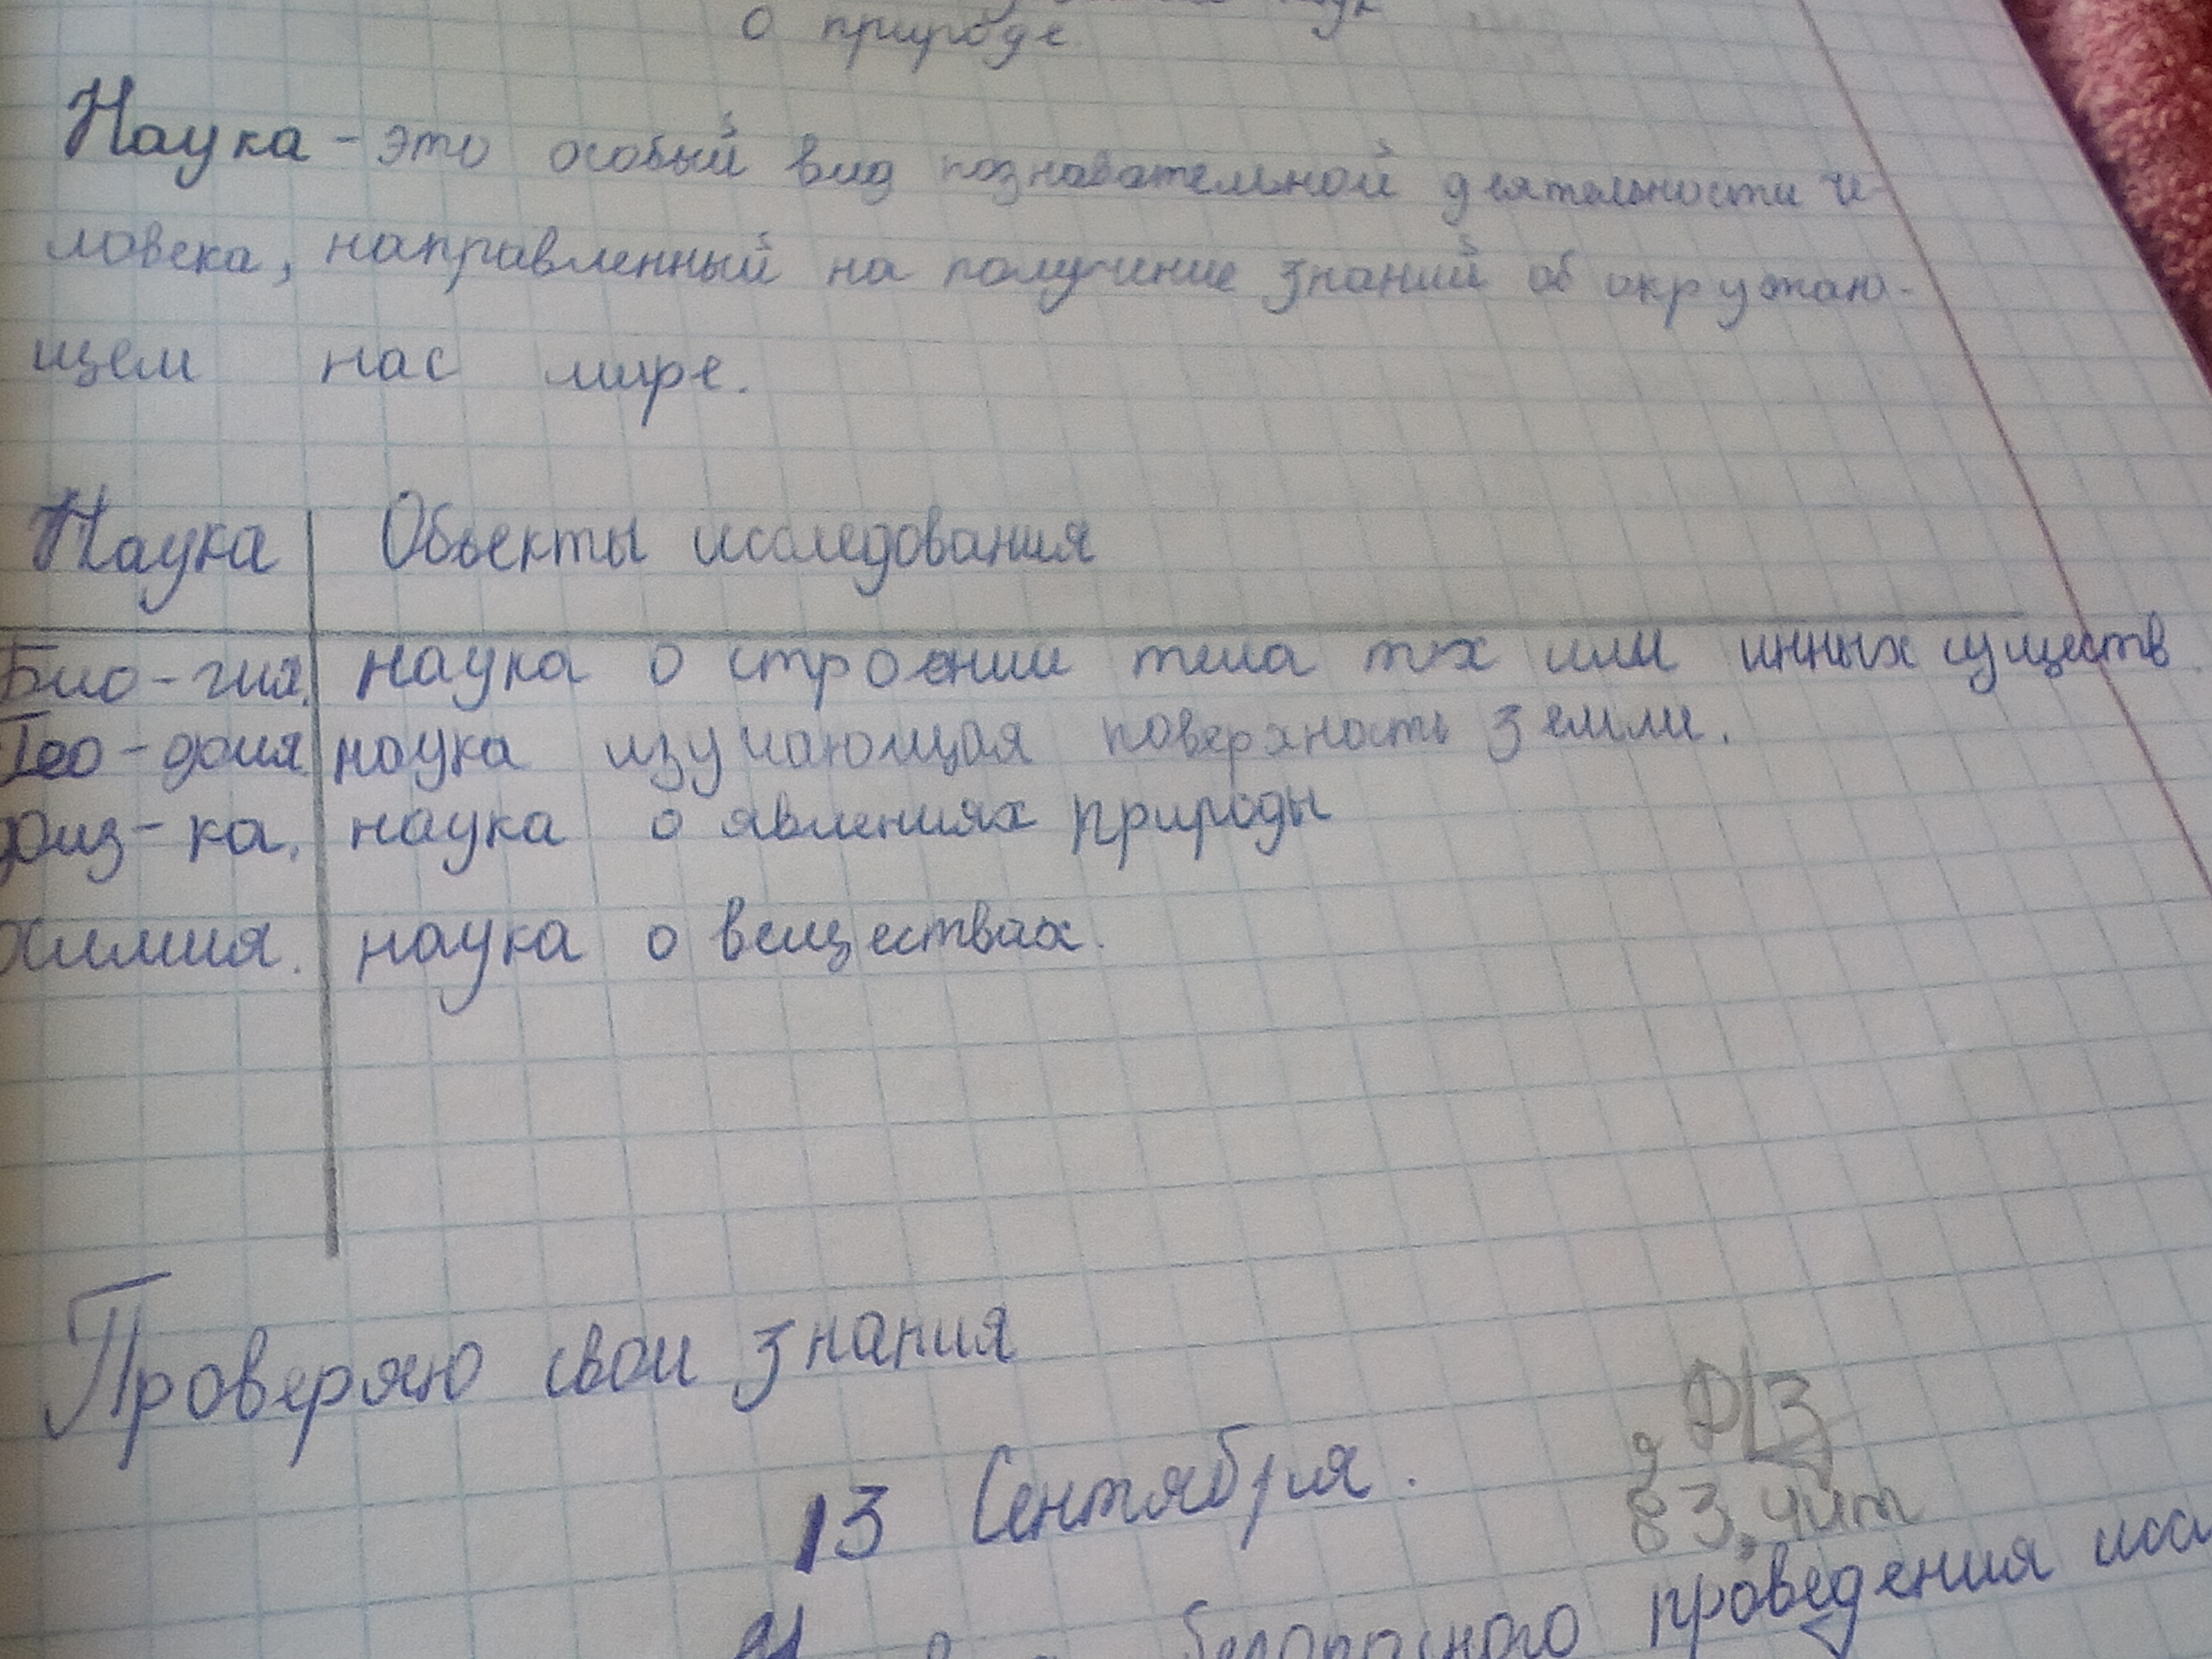 о природе
Наука - это особый вид познавательной деятельности че-
ловека, направленный на получение знаний об окружаю-
щем нас мире.
Наука Объекты исследования
Био-гия. наука о строении тела тех или инных существ.
Гео-фия. наука изучающая поверхность земли.
Физ-ка. наука о явлениях природы
Химия. наука о веществах.
Проверяю свои знания
Д/З
13 Сентября.
§3, чит
безопасного проведения иссл